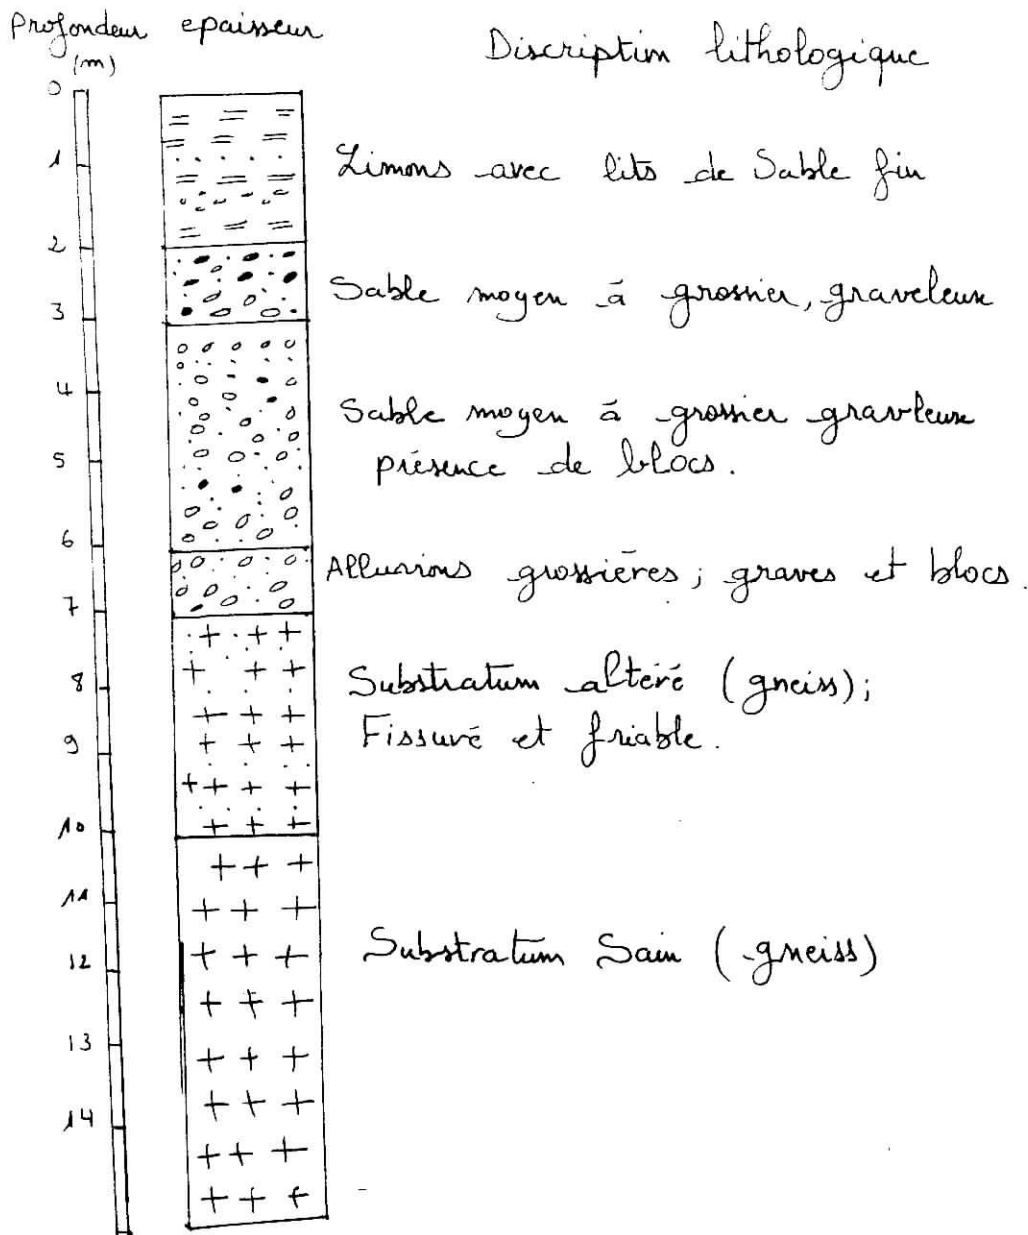 Profondeur epaisseur
Discription lithologique
(m)
0
1
Limons avec lits de Sable fin
2
Sable moyen à grossier, graveleux
3
4
Sable moyen à grossier graveleux
présence de blocs.
5
6
Alluvions grossières; graves et blocs.
7
Substratum altéré (gneiss);
8
Fissuré et friable.
9
10
11
Substratum Sain (gneiss)
12
13
14